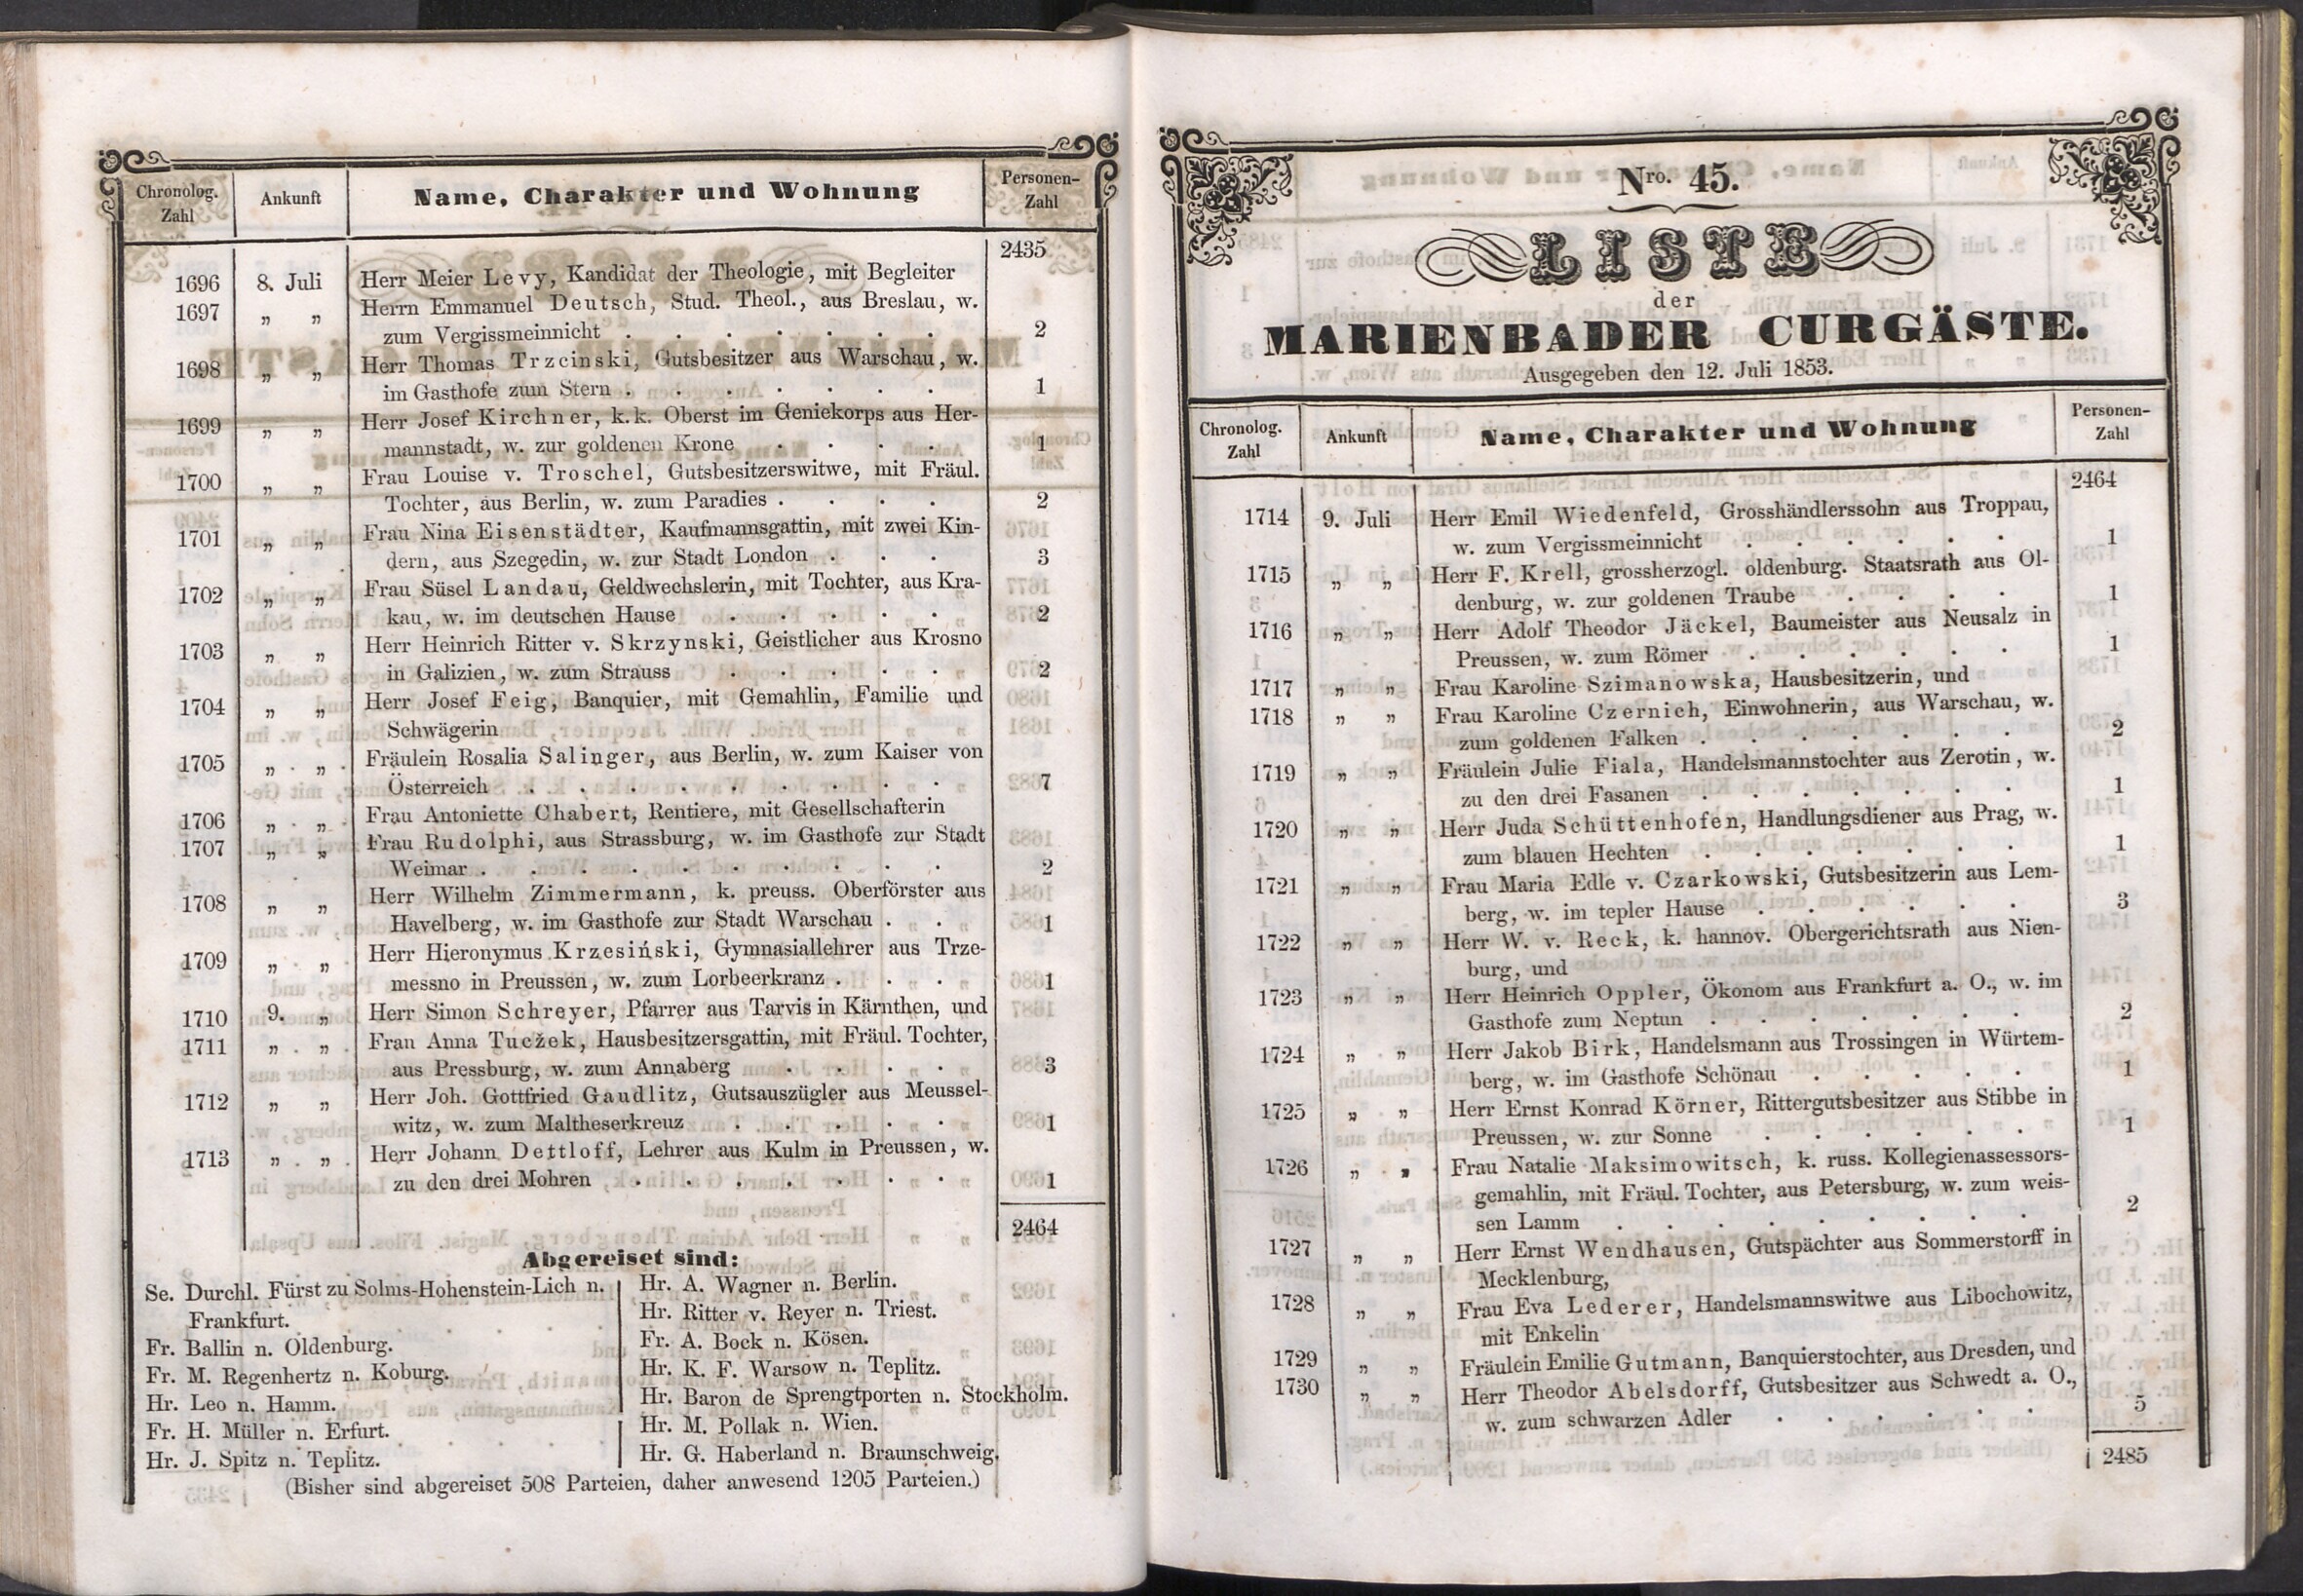 Chronolog. Zahl
Ankunft
Name, Charakter und Wohnung
Personen-Zahl
2435
1696 8. Juli Herr Meier Levy, Kandidat der Theologie, mit Begleiter
1697 „ „ Herrn Emmanuel Deutsch, Stud. Theol., aus Breslau, w.
zum Vergissmeinnicht . . . . . . . 2
1698 „ „ Herr Thomas Trzcinski, Gutsbesitzer aus Warschau, w.
im Gasthofe zum Stern . . . . . . . 1
1699 „ „ Herr Josef Kirchner, k.k. Oberst im Geniekorps aus Her-
mannstadt, w. zur goldenen Krone . . . . 1
1700 „ „ Frau Louise v. Troschel, Gutsbesitzerswitwe, mit Fräul.
Tochter, aus Berlin, w. zum Paradies . . . . 2
1701 „ „ Frau Nina Eisenstädter, Kaufmannsgattin, mit zwei Kin-
dern, aus Szegedin, w. zur Stadt London . . . 3
1702 „ „ Frau Süsel Landau, Geldwechslerin, mit Tochter, aus Kra-
kau, w. im deutschen Hause . . . . . 2
1703 „ „ Herr Heinrich Ritter v. Skrzynski, Geistlicher aus Krosno
in Galizien, w. zum Strauss . . . . . 2
1704 „ „ Herr Josef Feig, Banquier, mit Gemahlin, Familie und
Schwägerin
1705 „ „ Fräulein Rosalia Salinger, aus Berlin, w. zum Kaiser von
Österreich . . . . . . . . . 7
1706 „ „ Frau Antoniette Chabert, Rentiere, mit Gesellschafterin
1707 „ „ Frau Rudolphi, aus Strassburg, w. im Gasthofe zur Stadt
Weimar . . . . . . . . . . 2
1708 „ „ Herr Wilhelm Zimmermann, k. preuss. Oberförster aus
Havelberg, w. im Gasthofe zur Stadt Warschau . . 1
1709 „ „ Herr Hieronymus Krzesiński, Gymnasiallehrer aus Trze-
messno in Preussen, w. zum Lorbeerkranz . . . 1
1710 9. „ Herr Simon Schreyer, Pfarrer aus Tarvis in Kärnthen, und
1711 „ „ Frau Anna Tuczek, Hausbesitzersgattin, mit Fräul. Tochter,
aus Pressburg, w. zum Annaberg . . . . 3
1712 „ „ Herr Joh. Gottfried Gaudlitz, Gutsauszügler aus Meussel-
witz, w. zum Maltheserkreuz . . . . . 1
1713 „ „ Herr Johann Dettloff, Lehrer aus Kulm in Preussen, w.
zu den drei Mohren . . . . . . . 1
2464
Abgereiset sind:
Se. Durchl. Fürst zu Solms-Hohenstein-Lich n.
Frankfurt.
Fr. Ballin n. Oldenburg.
Fr. M. Regenhertz n. Koburg.
Hr. Leo n. Hamm.
Fr. H. Müller n. Erfurt.
Hr. J. Spitz n. Teplitz.
Hr. A. Wagner n. Berlin.
Hr. Ritter v. Reyer n. Triest.
Fr. A. Bock n. Kösen.
Hr. K. F. Warsow n. Teplitz.
Hr. Baron de Sprengtporten n. Stockholm.
Hr. M. Pollak n. Wien.
Hr. G. Haberland n. Braunschweig.
(Bisher sind abgereiset 508 Parteien, daher anwesend 1205 Parteien.)
Nro. 45.
LISTE
der
MARIENBADER CURGÄSTE.
Ausgegeben den 12. Juli 1853.
Chronolog. Zahl
Ankunft
Name, Charakter und Wohnung
Personen-Zahl
2464
1714 9. Juli Herr Emil Wiedenfeld, Grosshändlerssohn aus Troppau,
w. zum Vergissmeinnicht . . . . . . 1
1715 „ „ Herr F. Krell, grossherzogl. oldenburg. Staatsrath aus Ol-
denburg, w. zur goldenen Traube . . . . 1
1716 „ „ Herr Adolf Theodor Jäckel, Baumeister aus Neusalz in
Preussen, w. zum Römer . . . . . . 1
1717 „ „ Frau Karoline Szimanowska, Hausbesitzerin, und
1718 „ „ Frau Karoline Czernich, Einwohnerin, aus Warschau, w.
zum goldenen Falken . . . . . . . 2
1719 „ „ Fräulein Julie Fiala, Handelsmannstochter aus Zerotin, w.
zu den drei Fasanen . . . . . . . 1
1720 „ „ Herr Juda Schüttenhofen, Handlungsdiener aus Prag, w.
zum blauen Hechten . . . . . . . 1
1721 „ „ Frau Maria Edle v. Czarkowski, Gutsbesitzerin aus Lem-
berg, w. im tepler Hause . . . . . . 3
1722 „ „ Herr W. v. Reck, k. hannov. Obergerichtsrath aus Nien-
burg, und
1723 „ „ Herr Heinrich Oppler, Ökonom aus Frankfurt a. O., w. im
Gasthofe zum Neptun . . . . . . . 2
1724 „ „ Herr Jakob Birk, Handelsmann aus Trossingen in Würtem-
berg, w. im Gasthofe Schönau . . . . . 1
1725 „ „ Herr Ernst Konrad Körner, Rittergutsbesitzer aus Stibbe in
Preussen, w. zur Sonne . . . . . . 1
1726 „ „ Frau Natalie Maksimowitsch, k. russ. Kollegienassessors-
gemahlin, mit Fräul. Tochter, aus Petersburg, w. zum weis-
sen Lamm . . . . . . . . . 2
1727 „ „ Herr Ernst Wendhausen, Gutspächter aus Sommerstorff in
Mecklenburg,
1728 „ „ Frau Eva Lederer, Handelsmannswitwe aus Libochowitz,
mit Enkelin
1729 „ „ Fräulein Emilie Gutmann, Banquierstochter, aus Dresden, und
1730 „ „ Herr Theodor Abelsdorff, Gutsbesitzer aus Schwedt a. O.,
w. zum schwarzen Adler . . . . . . 5
2485